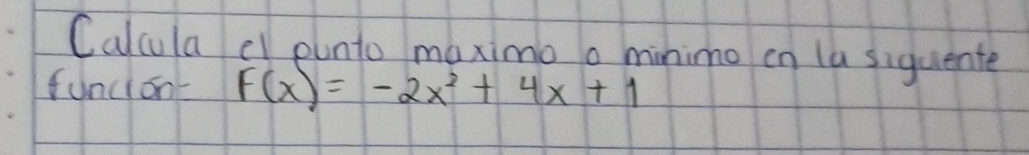 Calcula el punto maximo o minimo en la siguiente
función= F(x) = -2x² + 4x + 1